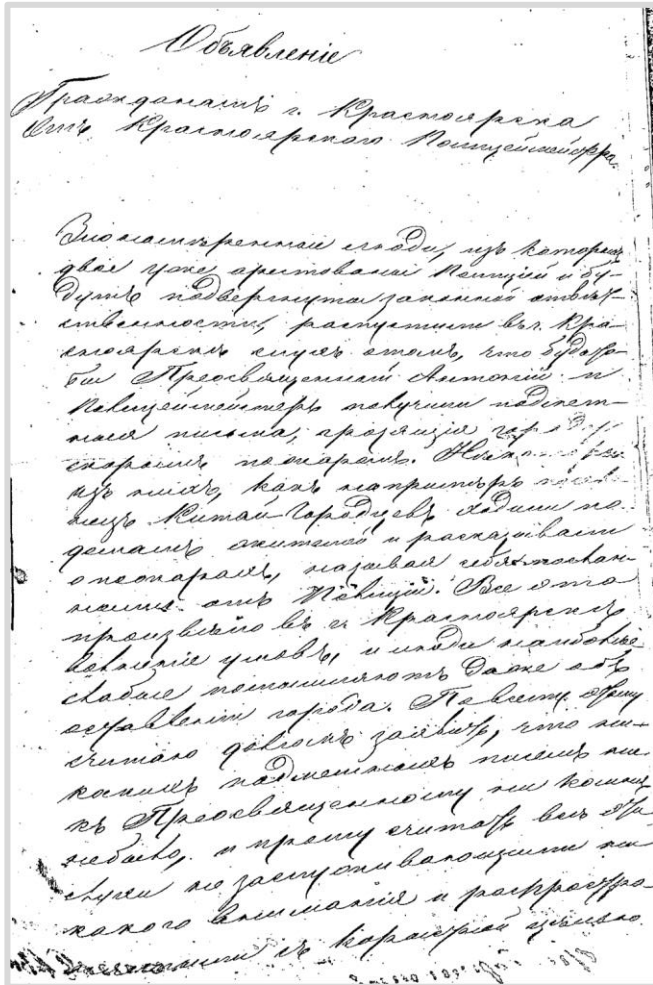 Объявленіе
Гражданамъ г. Красноярска
Отъ Красноярскаго Полицеймейстера.
Злонамѣренные люди, изъ которыхъ
двое уже арестованы Полиціей и бу-
дутъ подвергнуты законной отвѣт-
ственности, распустили въ г. Кра-
сноярскѣ слухъ о томъ, что будто
бы Преосвященный Антоній и
Полицеймейстеръ получили подмет-
ныя письма, грозящія городу
скорымъ пожаромъ. Нѣкоторые
изъ нихъ, какъ напримѣръ
изъ Китай-Городцевъ ходили по
домамъ жителей и расказывали
о пожарахъ, называя себя послан-
ными отъ Полиціи. Все это
произвело въ г. Красноярскѣ
волненіе умовъ, и люди наиболѣе
слабые помышляютъ даже объ
оставленіи города. По всему этому
считаю долгомъ заявить, что ни-
какихъ подметныхъ писемъ ни
къ Преосвященному ни ко мнѣ
небыло, и прошу считать всѣ эти
слухи не заслуживающими ни-
какого вниманія и распростра-
съ корыстной цѣлью